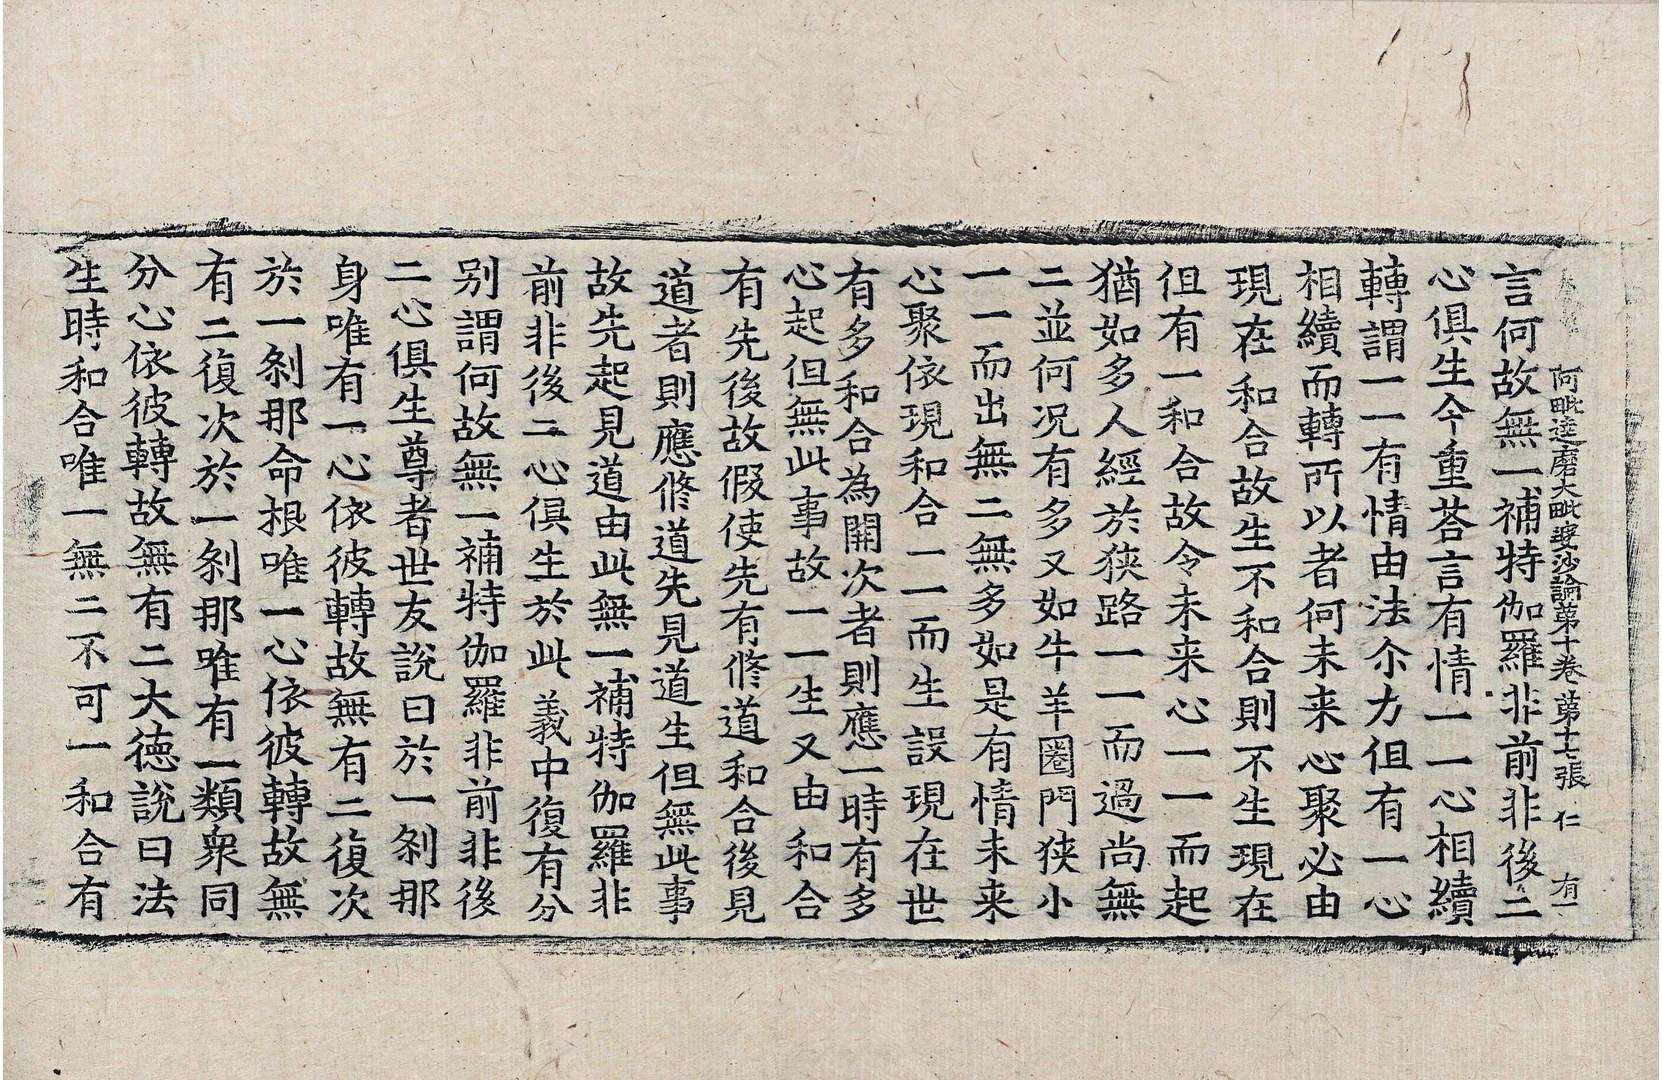 阿毗達磨大毗婆沙論第十卷 第十七張 仁 有一
言何故無一補特伽羅非前非後二
心俱生今重荅言有情一一心相續
轉謂一一有情由法尒力但有一心
相續而轉所以者何未来心聚必由
現在和合故生不和合則不生現在
但有一和合故令未来心一一而起
猶如多人經於狹路一一而過尚無
二並何况有多又如牛羊圈門狹小
一一而出無二無多如是有情未来
心聚依現和合一一而生設現在世
有多和合為開次者則應一時有多
心起但無此事故一一生又由和合
有先後故假使先有修道和合後見
道者則應修道先見道生但無此事
故先起見道由此無一補特伽羅非
前非後二心俱生於此義中復有分
别謂何故無一補特伽羅非前非後
二心俱生尊者世友說曰於一剎那
身唯有一心依彼轉故無有二復次
於一剎那命根唯一心依彼轉故無
有二復次於一剎那唯有一類衆同
分心依彼轉故無有二大德說曰法
生時和合唯一無二不可一和合有